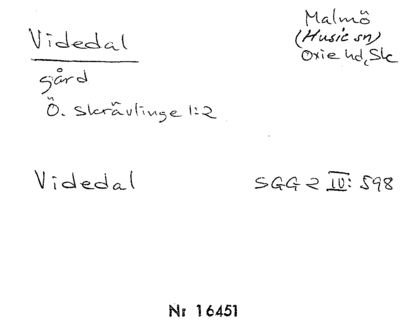 Videdal
Malmö
(Husie sn)
Oxie hd, Sk
gård
Ö. Skrävlinge 1:2
Videdal
SGG 2 IV: 598
Nr 16451